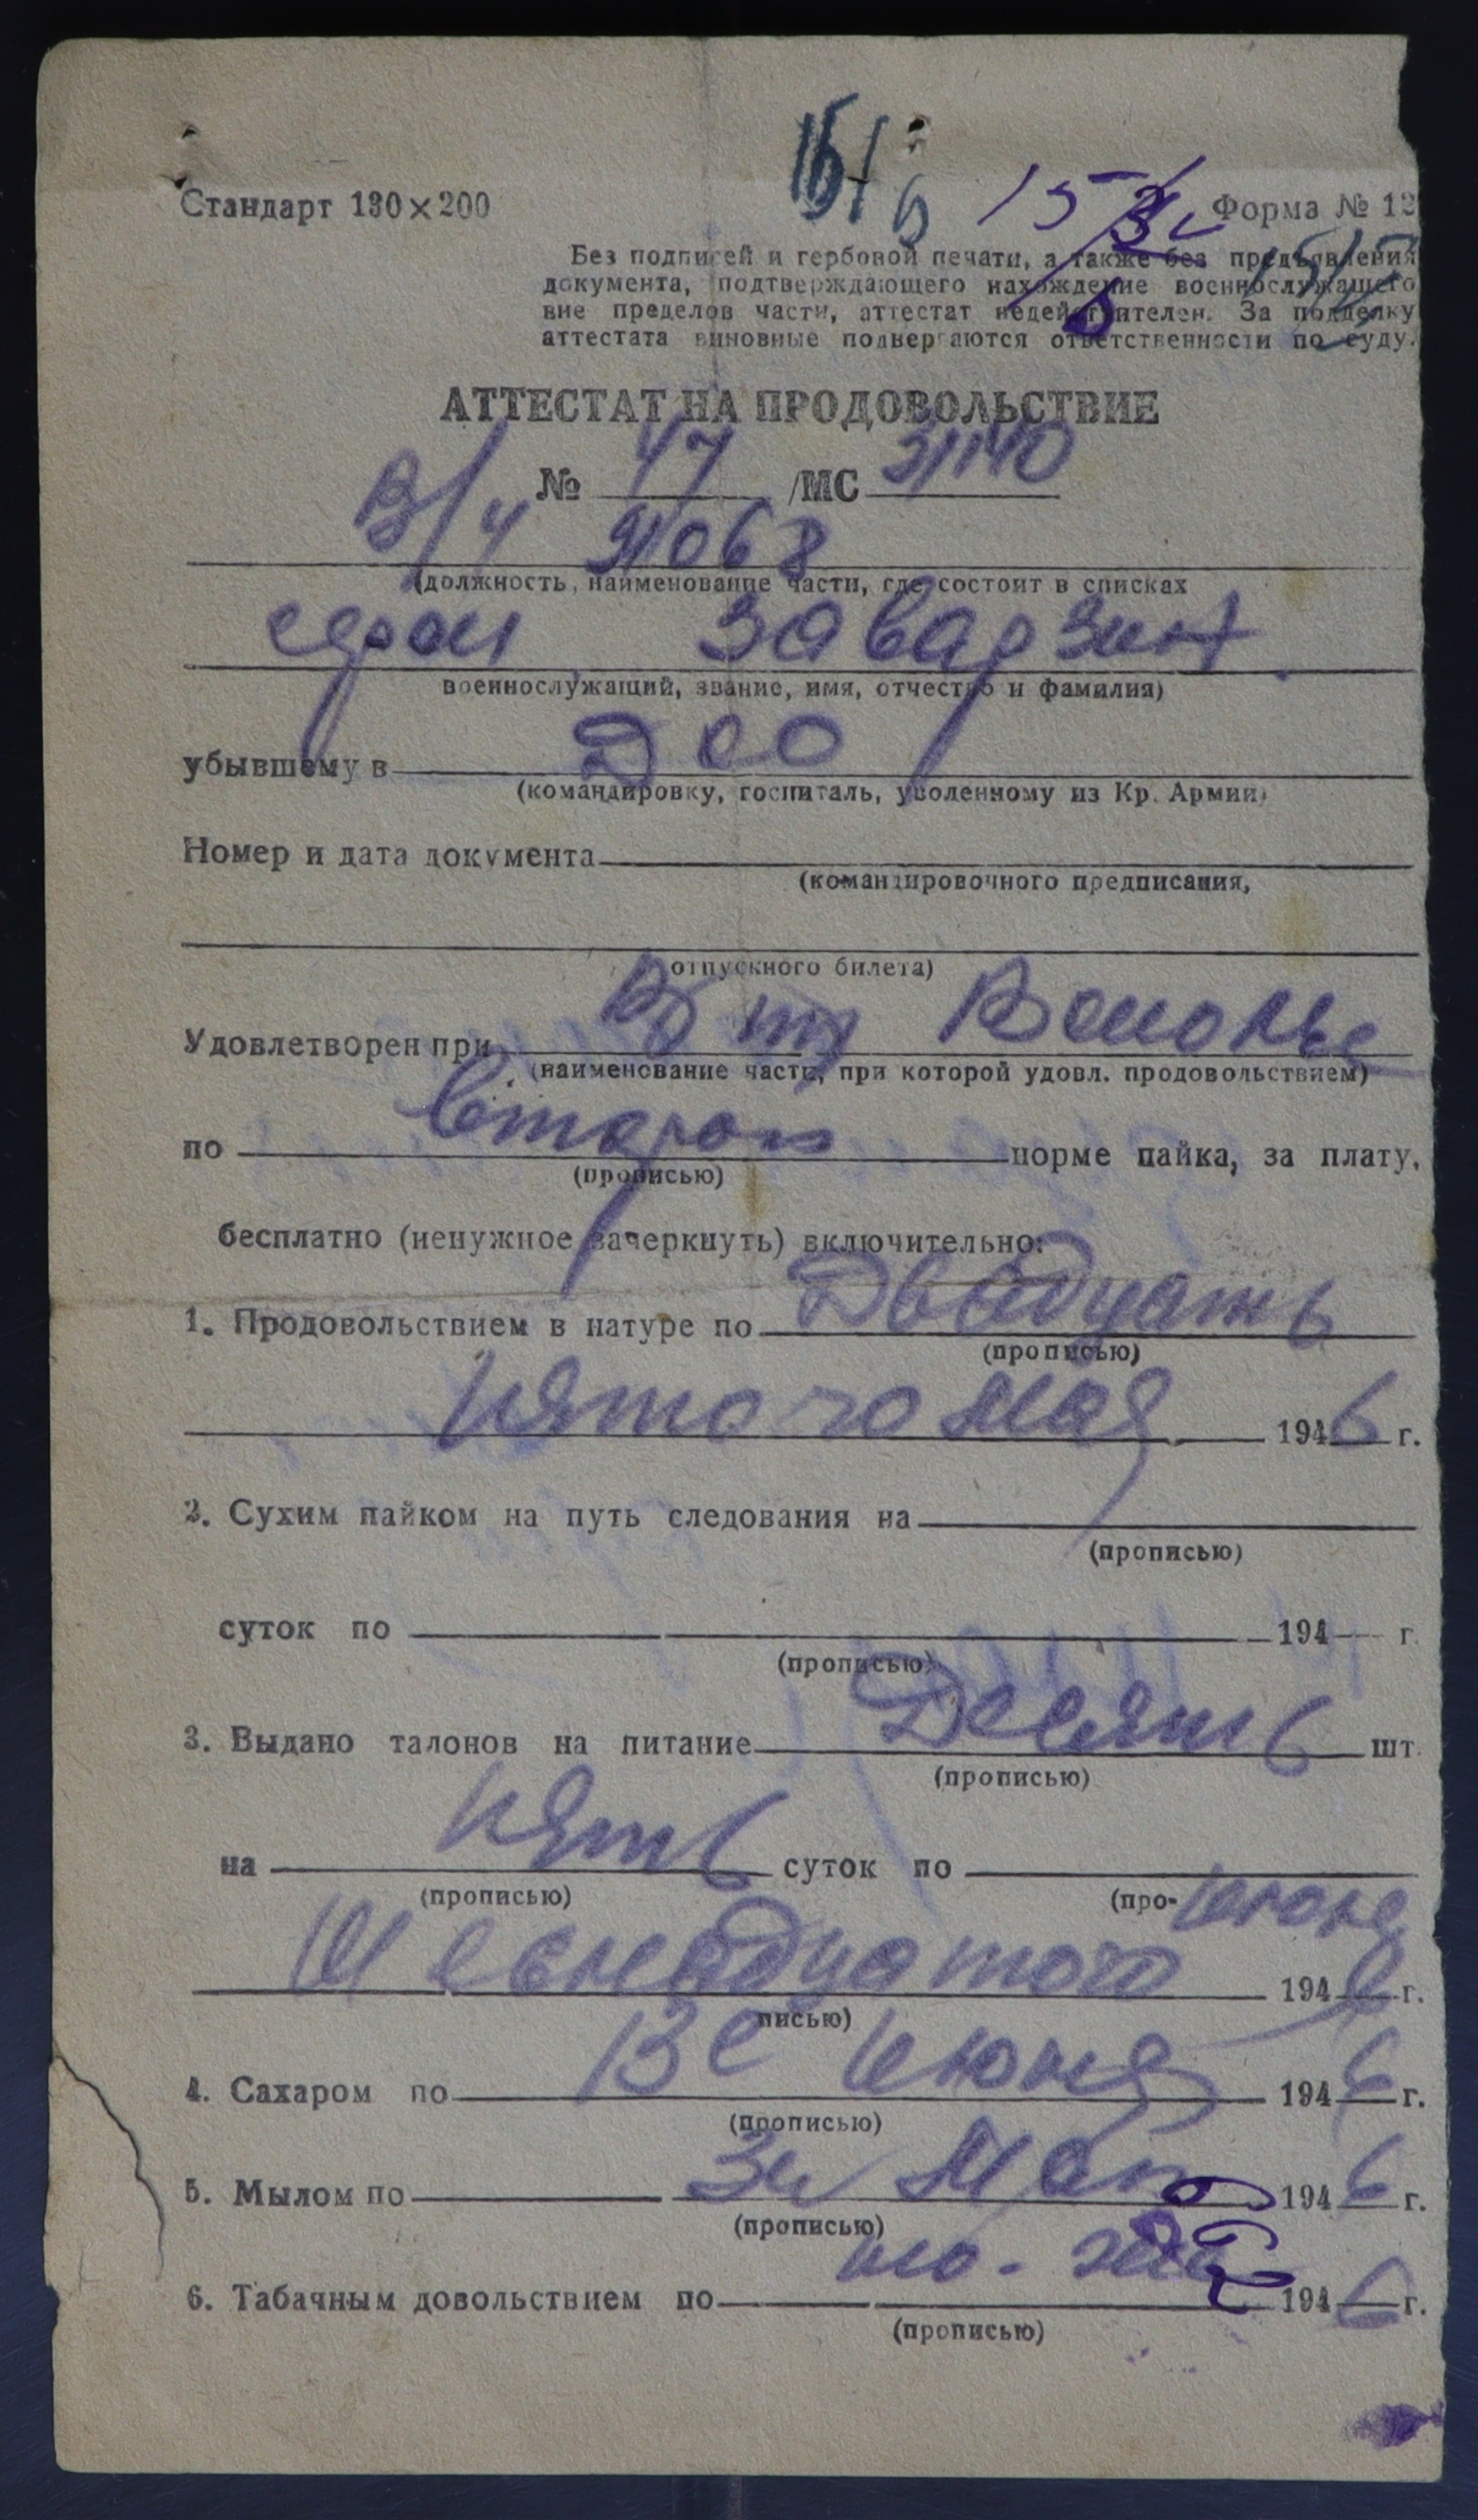 Стандарт 130×200
Форма № 12
Без подписей и гербовой печати, а также без предъявления
документа, подтверждающего нахождение военнослужащего
вне пределов части, аттестат недействителен. За подделку
аттестата виновные подвергаются ответственности по суду.
АТТЕСТАТ НА ПРОДОВОЛЬСТВИЕ
№ 47 /МС 31140
В/ч 91068
(должность, наименование части, где состоит в списках
Завардзин
военнослужащий, звание, имя, отчество и фамилия)
убывшему в
(командировку, госпиталь, уволенному из Кр. Армии)
Номер и дата документа
(командировочного предписания,
отпускного билета)
Удовлетворен при
(наименование части, при которой удовл. продовольствием)
по второй норме пайка, за плату,
(прописью)
бесплатно (ненужное зачеркнуть) включительно:
1. Продовольствием в натуре по Двадцать
(прописью)
пятого мая 1946 г.
2. Сухим пайком на путь следования на
(прописью)
суток по 194 г.
(прописью)
3. Выдано талонов на питание Десять шт.
(прописью)
на пять суток по
(прописью) (про- июня
Шеснадцатого 1946 г.
писью)
4. Сахаром по 13е июня 1946 г.
(прописью)
5. Мылом по 31 мая 1946 г.
(прописью)
6. Табачным довольствием по 1946 г.
(прописью)